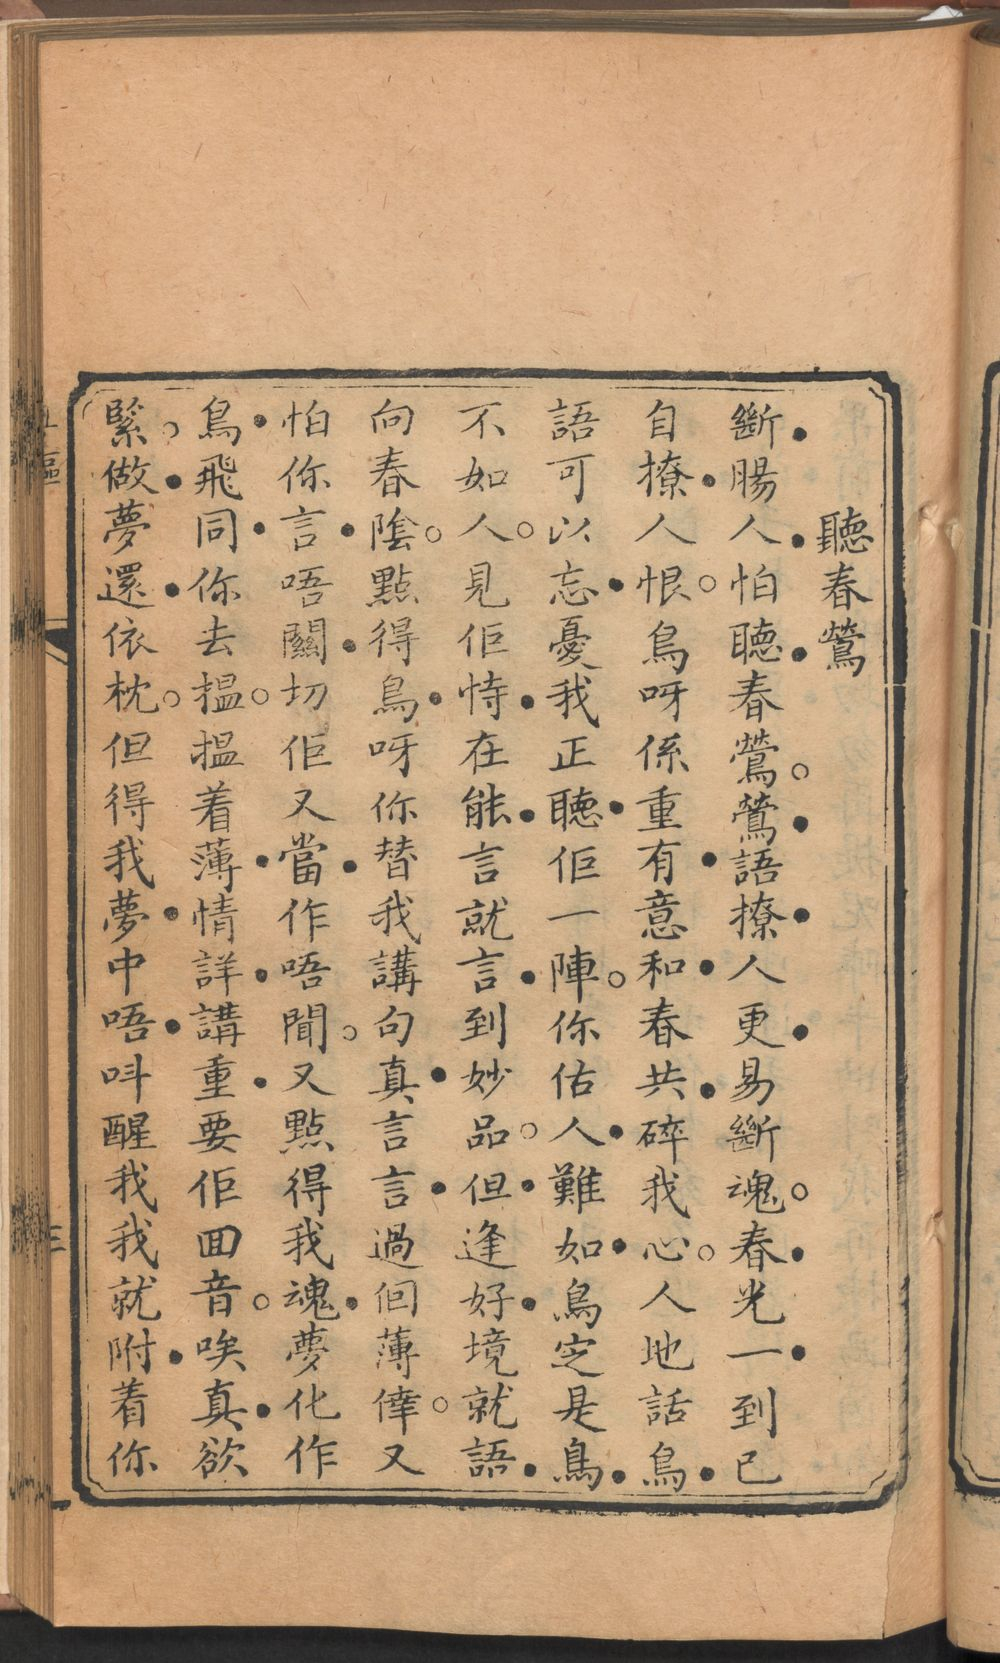 聽春鶯
斷腸人怕聽春鶯鶯語撩人更易斷魂春光一到已
自撩人恨鳥呀係重有意和春共碎我心人地話鳥
語可以忘憂我正聽佢一陣你估人難如鳥定是鳥
不如人見佢恃在能言就言到妙品但逢好境就語
向春陰點得鳥呀你替我講句真言言過個薄倖又
怕你言唔關切佢又當作唔聞又點得我魂夢化作
鳥飛同你去搵搵着薄情詳講重要佢回音唉真欲
緊做夢還依枕但得我夢中唔呌醒我我就附着你
三